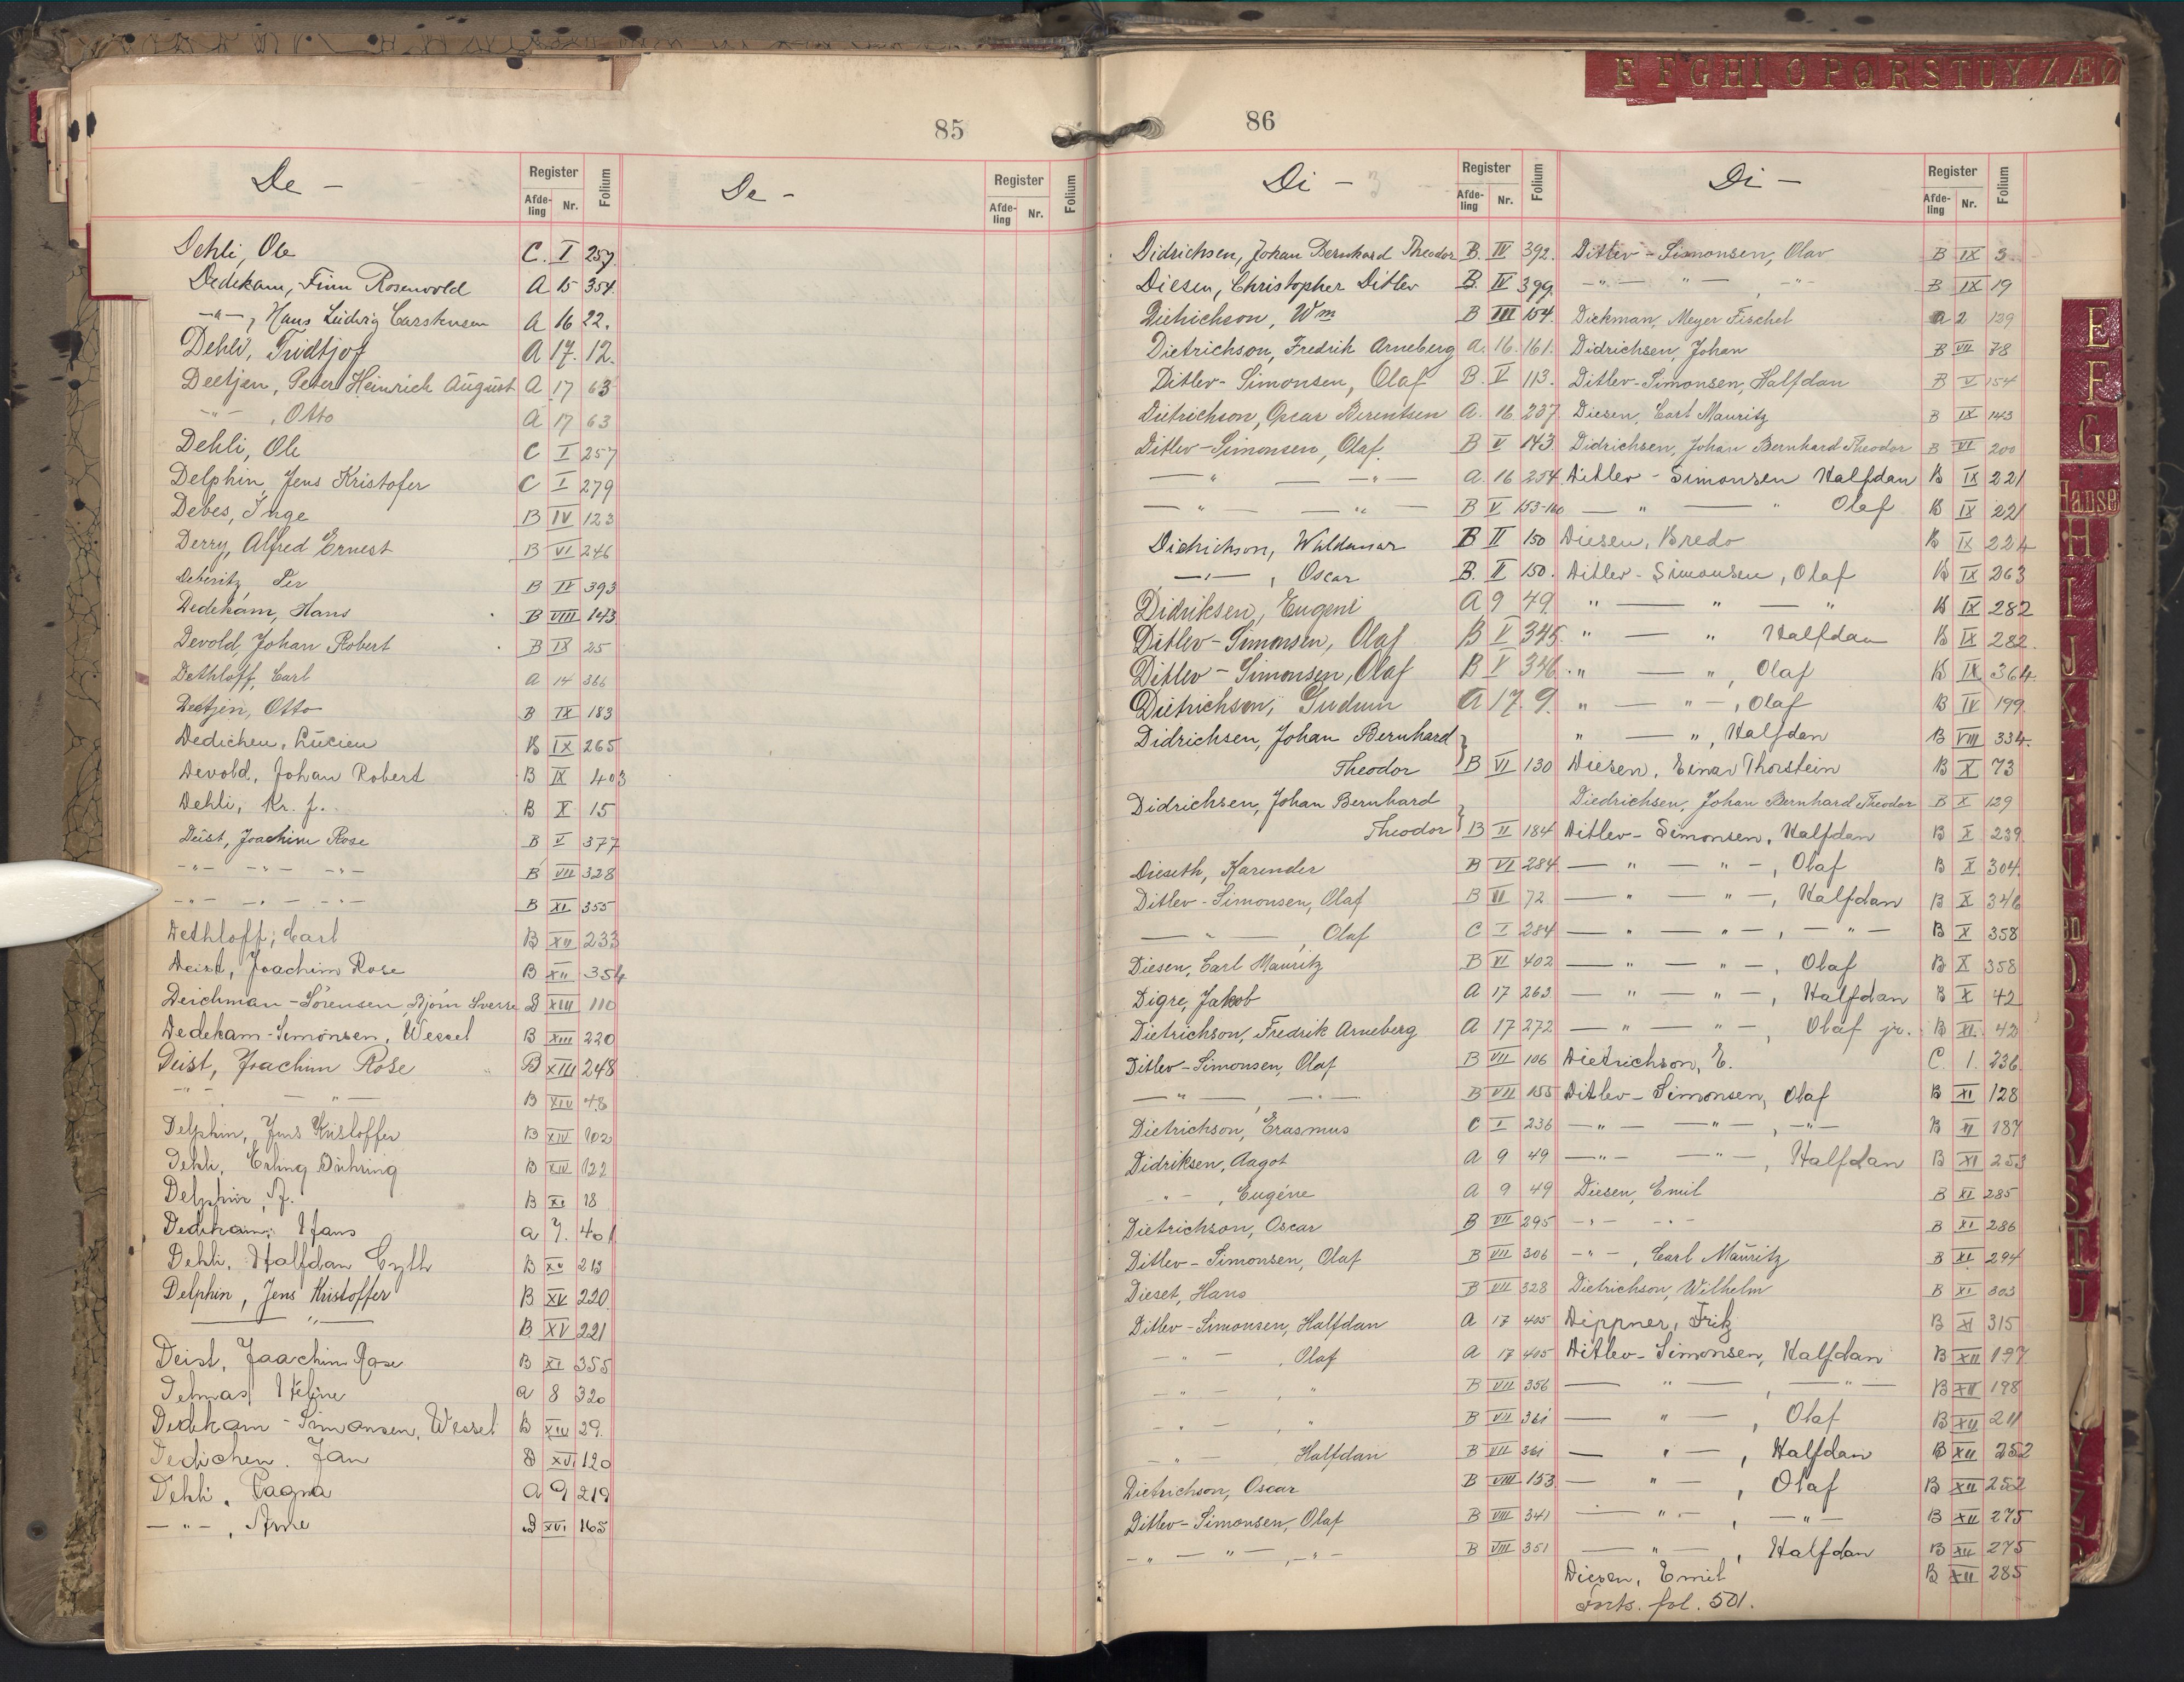 85
De -
Register
Afde-ling
Nr.
Folium
De -
Register
Afde-ling
Nr.
Folium
Dehli, Ole C. I 257.
Dedekam, Finn Rosenvold A 15 354.
-"-, Hans Ludvig Carstensen A 16 22.
Dehli, Fridtjof A 17. 12.
Deetjen, Peter Heinrich August A 17 63
-"- , Otto A 17 63
Dehli, Ole C I 257
Delphin, Jens Kristofer C I 279
Debes, Inge B IV 123
Derry, Alfred Ernest B VI 246
Deberitz, Per B IV 393
Dedekam, Hans B VIII 143
Devold, Johan Robert B IX 25
Dethloff, Carl A 14 366
Deetjen, Otto B IX 183
Dedichen, Lucien B IX 265
Devold, Johan Robert B IX 403
Dehli, Kr. f. B X 15
Deist, Joachim Rose B V 377
-"- -"- -"- B VII 328
-"- -"- -"- B XI 355
Dethloff, Carl B XII 233
Deist, Joachim Rose B XII 354
Deichman-Sörensen, Bjørn Sverre B XIII 110
Dedekam-Simonsen, Wessel B XIII 220
Deist, Joachim Rose B XIII 248
-"- -"- B XIV 48
Delphin, Jens Kristoffer B XIV 102
Dehli, Erling Dühring B XIV 122
Delphin, A. B XI 18
Dedekam, Hans a 7. 401
Dehli, Halfdan Gyth B XV 213
Delphin, Jens Kristoffer B XV 220
-"- B XV 221
Deist, Joachim Rose B XI 355
Delmas, Helene a 8 320
Dedekam-Simonsen, Wessel B XIV 29.
Dedichen. Jan B XVI 120
Dehli, Ragna a 9 219
-"-, Arne B XVI 165
86
Di -
Register
Afde-ling
Nr.
Folium
Di -
Register
Afde-ling
Nr.
Folium
Didrichsen, Johan Bernhard Theodor B. IV 392.
Diesen, Christopher Ditlev B. IV 399.
Dietrichson, Wm B III 154.
Dietrichson, Fredrik Arneberg a. 16. 161.
Ditlev-Simonsen, Olaf B. V 113.
Dietrichson, Oscar Berentsen a. 16. 237
Ditlev-Simonsen, Olaf. B V 143.
-"- -"- a. 16 254
-"- -"- B V 153-160
Dietrichson, Waldemar B II 150
-"-, Oscar B. II 150.
Didriksen, Eugeni A 9 49
Ditlev-Simonsen, Olaf B V 345
Ditlev-Simonsen, Olaf B V 346.
Dietrichson, Gudrun a 17. 9.
Didrichsen, Johan Bernhard
Theodor B VI 130
Didrichsen, Johan Bernhard
Theodor B II 184
Dieseth, Karender B VI 284
Ditlev-Simonsen, Olaf B VII 72
-"- , Olaf C I 284
Diesen, Carl Mauritz B VI 402
Digre, Jakob A 17 263
Dietrichson, Fredrik Arneberg A 17 272
Ditlev-Simonsen, Olaf B VII 106
-"- , -"- B VII 155
Dietrichson, Erasmus C I 236
Didriksen, Aagot A 9 49
-"- , Eugéne A 9 49
Dietrichson, Oscar B VII 295
Ditlev-Simonsen, Olaf B VII 306
Dieset, Hans B VII 328
Ditlev-Simonsen, Halfdan A 17 405
-"- , Olaf A 17 405
-"- , " B VII 356
-"- , " B VII 361
-"- , Halfdan B VII 361
Dietrichson, Oscar B VIII 153
Ditlev-Simonsen, Olaf B VIII 341
-"- -"- , -"- B VIII 351
Ditlev-Simonsen, Olav B IX 3
-"- "- , -"- B IX 19
Diekman, Meyer Fischel a 2 139
Didrichsen, Johan B VII 78
Ditlev-Simonsen, Halfdan B V 154
Diesen, Carl Mauritz B IX 143
Didrichsen, Johan Bernhard Theodor B VI 200
Ditlev-Simonsen Halfdan B IX 221
-"- " Olaf B IX 221
Diesen, Bredo B IX 224
Ditlev-Simonsen, Olaf B IX 263
" - " - " B IX 282
" - " Halfdan B IX 282.
" - ", Olaf B IX 364.
" - " -, Olaf B IV 199
" - ", Halfdan B VIII 334.
Diesen, Einar Thorstein B X 73
Diedrichsen, Johan Bernhard Theodor B X 129
Ditlev-Simonsen, Halfdan B X 239
- " - " -, Olaf B X 304.
- " - " -, Halfdan B X 346
- " - " -, - " - B X 358
- " - " -, Olaf B X 358
- " - " -, Halfdan B X 42
- " - " -, Olaf jr. B XI. 42
Dietrichson, E. C. 1. 236.
Ditlev-Simonsen, Olaf B XI 128
-"- -"- , -"- B XI 187
-"- -"- , Halfdan B XI 253
Diesen, Emil B XI 285
-"- -"- B XI 286
-"- , Carl Mauritz B XI 294
Dietrichson, Wilhelm B XI 303
Dippner, Fritz B XI 315
Ditlev-Simonsen, Halfdan B XII 197
- " - , - " - B XII 198
- " - , Olaf B XII 211
- " - , Halfdan B XII 252
- " - , Olaf B XII 252
- " - , - " - B XII 275
- " - , Halfdan B XII 275
Diesen, Emil B XII 285
Forts. fol. 501.
E F G H I O P Q R S T U Y Z Æ Ø
E
F
G
Hanse
H
I
J
K
L
M
N
O
P
Q
R
S
T
U
V
Z